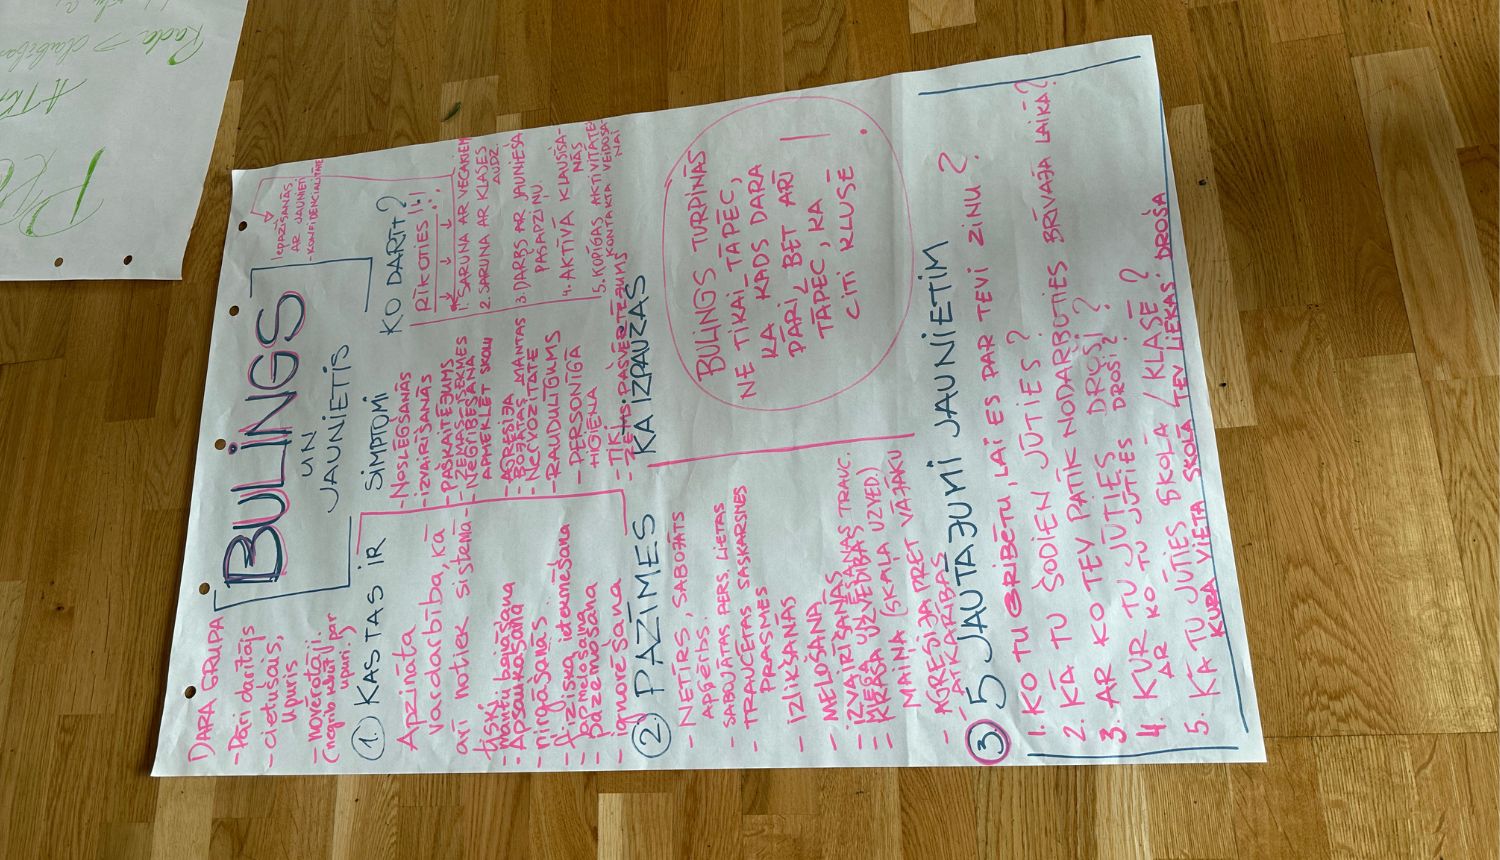 BULINGS
UN
JAUNIETIS
DARA GRUPA
- Pāri darītājs
- cietušais,
upuris
- novērotāji.
(negrib kļūt par
upuri.)
IEPAZĪŠANĀS
AR JAUNIETI
- KONFIDENCIALITĀTE
1. KAS TAS IR
Apzināta
vardarbība, kā
arī notiek sistemā-
tiski
- mantu bojāšana
- Apsaukāšana
- ņirgāšanās...
- fiziska ietekmēšana
- apmelošana
- pazemošana
- ignorēšana
SIMPTOMI
- NOSLĒGŠANĀS
- IZVAIRĪŠANĀS
- PAŠKAITĒJUMS
- ZEMAS SEKMES
- NEGRIBĒŠANA
APMEKLĒT SKOLU
- AGRESIJA
- BOJĀTAS MANTAS
- NERVOZITĀTE
- RAUDULĪGUMS
- PERSONĪGĀ
HIGIĒNA
- TIKI
- ZEMS PAŠVĒRTĒJUMS
KO DARĪT?
RĪKOTIES!!
1. SARUNA AR VECĀKIEM
2. SARUNA AR KLASES
AUDZ.
3. DARBS AR JAUNIEŠA
PAŠAPZIŅU.
4. AKTĪVĀ KLAUSĪŠA-
NĀS
5. KOPĪGAS AKTIVITĀTES
KONTAKTA VEIDOŠA-
NAI
2. PAZĪMES KĀ IZPAUŽAS
- NETĪRS, SABOJĀTS
APĢĒRBS.
- SABOJĀTAS PERS. LIETAS
- TRAUCĒTAS SASKARSMES
PRASMES
- IZLIKŠANĀS
- MELOŠANA
- IZVAIRĪŠANĀS
- MIEGA UN ĒŠANAS TRAUC.
- KRASA UZVEDĪBAS
MAIŅA (SKAĻA UZVED.)
- AGRESIJA PRET VĀJĀKU
- ATKARĪBAS
BULINGS TURPINĀS
NE TIKAI TĀPĒC,
KA KĀDS DARA
PĀRI, BET ARĪ
TĀPĒC, KA
CITI KLUSĒ!
3. 5 JAUTĀJUMI JAUNIETIM
1. KO TU GRIBĒTU, LAI ES PAR TEVI ZINU?
2. KĀ TU ŠODIEN JŪTIES?
3. AR KO TEV PATĪK NODARBOTIES BRĪVAJĀ LAIKĀ?
4. KUR TU JŪTIES DROŠI?
AR KO TU JŪTIES DROŠI?
5. KĀ TU JŪTIES SKOLĀ / KLASĒ?
KURA VIETA SKOLĀ TEV LIEKAS DROŠA
Rada → darbības